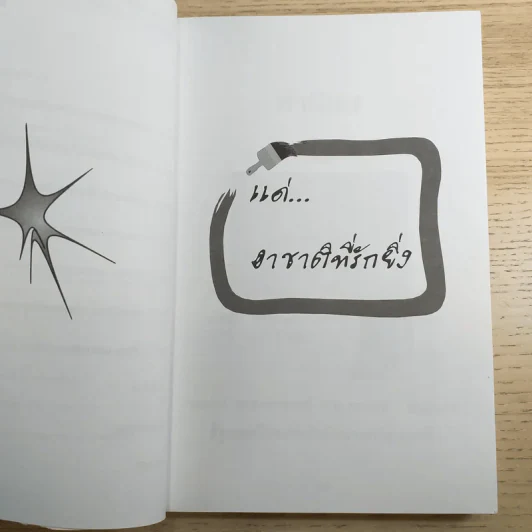 แด่...
อาชาติที่รักยิ่ง